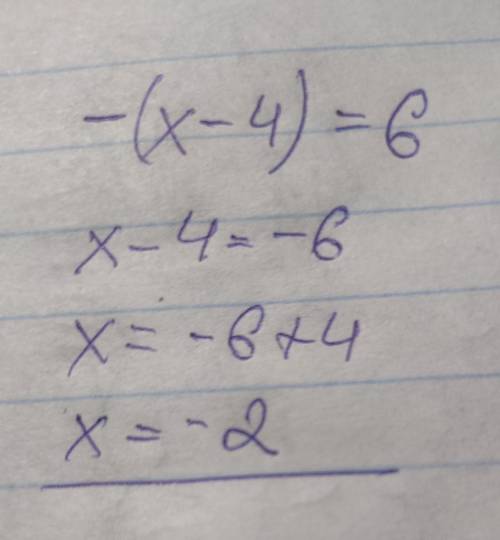 -(x-4)=6
x-4=-6
x=-6+4
x=-2